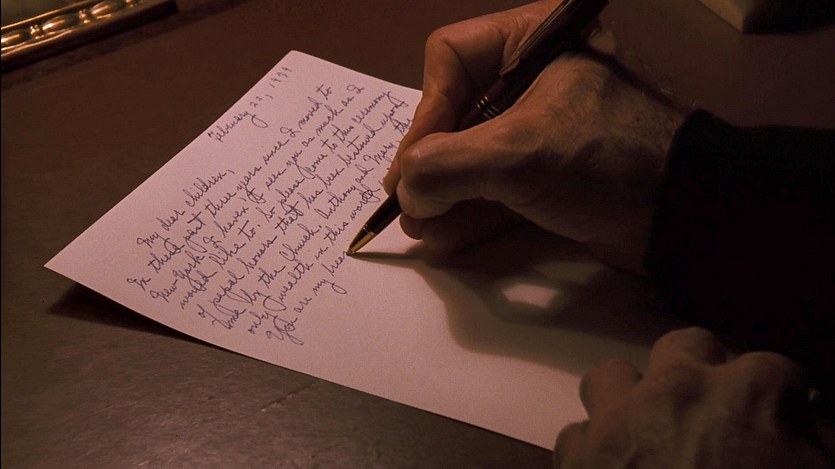 February 22, 1979
My dear children,
In these past three years since I moved to
New York I haven't seen you as much as I
would like to. So please come to this ceremony
of papal honors that has been bestowed upon
by the Church. Anthony and Mary, the
only wealth in this world
You are my